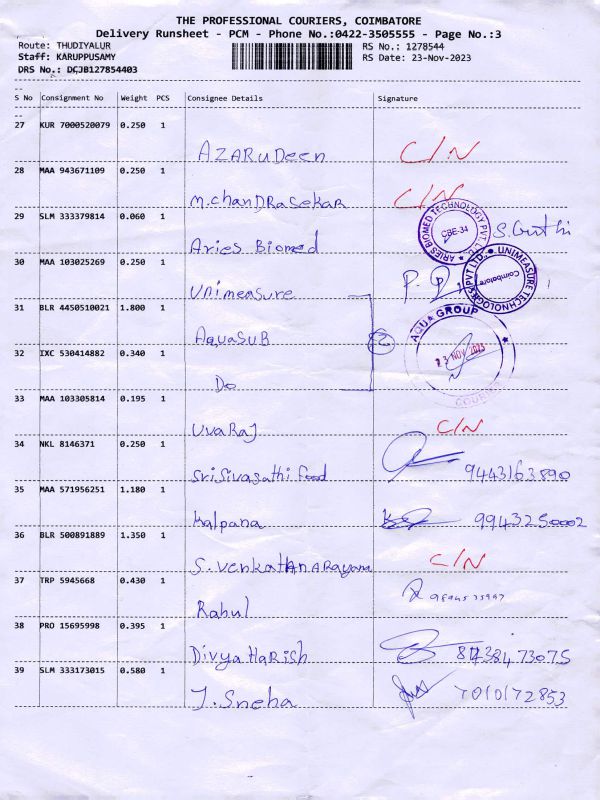 THE PROFESSIONAL COURIERS, COIMBATORE
Delivery Runsheet - PCM - Phone No.:0422-3505555 - Page No.:3
Route: THUDIYALUR
RS No.: 1278544
Staff: KARUPPUSAMY
RS Date: 23-Nov-2023
DRS No.: DCJB127854403
S No Consignment No Weight PCS Consignee Details Signature
27 KUR 7000520079 0.250 1
AZARUDEEN C/N
28 MAA 943671109 0.250 1
M.CHANDRASEKAR C/N
29 SLM 333379814 0.060 1
Aries Biomed
ARIES BIOMED TECHNOLOGY PVT. LTD.
CBE-34
30 MAA 103025269 0.250 1
Unimeasure
UNIMEASURE TECHNOLOGIES PVT LTD.
Coimbatore
31 BLR 4450510021 1.800 1
AquaSUB
2
AQUA GROUP
23 NOV 2023
COURIER
32 IXC 530414882 0.340 1
Do
33 MAA 103305814 0.195 1
Uvaraj C/N
34 NKL 8146371 0.250 1
SriSivasathi food 9443163890
35 MAA 571956251 1.180 1
Kalpana 9943250002
36 BLR 500891889 1.350 1
S. Venkathanarayana C/N
37 TRP 5945668 0.430 1
Rahul
38 PRO 15695998 0.395 1
Divya Harish
39 SLM 333173015 0.580 1
J. Sneha 7010172853